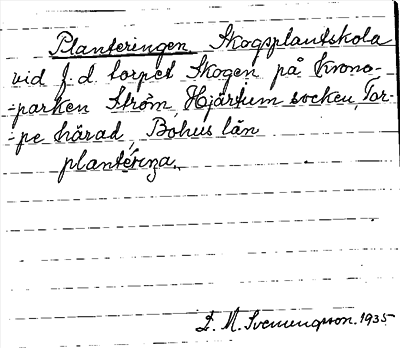 Planteringen Skogsplantskola
vid f.d. torpet Skogen på Krono-
-parken Ström, Hjärtum socken, Tor-
-pe härad, Bohus län
plantérŋa.
L. M. Svenungsson. 1935